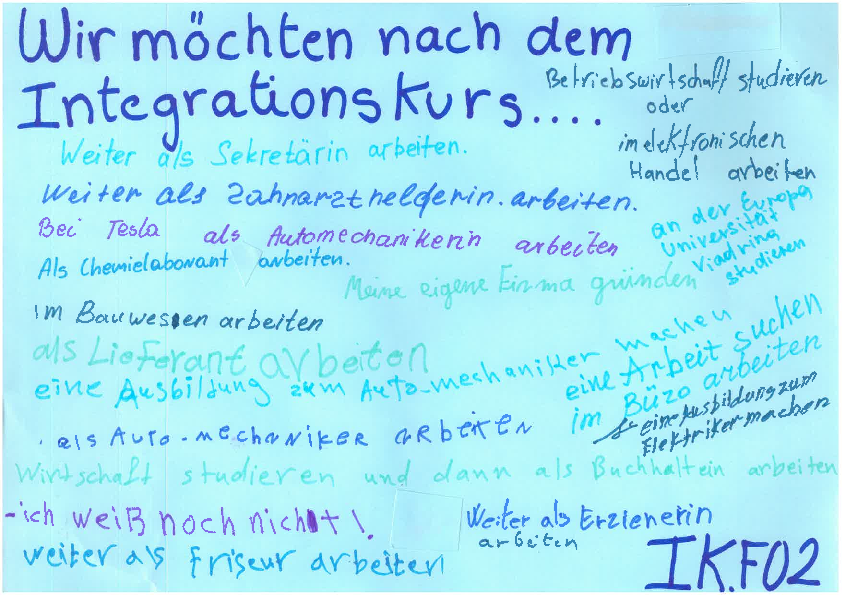 Wir möchten nach dem
Integrationskurs....
Betriebswirtschaft studieren
oder
im elektronischen
Handel arbeiten
Weiter als Sekretärin arbeiten.
Weiter als Zahnarzthelderin. arbeiten.
Bei Tesla als Automechanikerin arbeiten
an der Europa
Universität
Viadrina
studieren
Als Chemielaborant arbeiten.
Meine eigene Firma gründen
im Bauwesen arbeiten
als Lieferant arbeiten
eine Ausbildung zum Auto-mechaniker machen
eine Arbeit suchen
im Büro arbeiten
eine Ausbildung zum
Elektriker machen
als Auto-mechaniker arbeiten
Wirtschaft studieren und dann als Buchhaltein arbeiten
- ich weiß noch nicht!.
Weiter als Erzienerin
arbeiten
weiter als friseur arbeiten
IK.F02